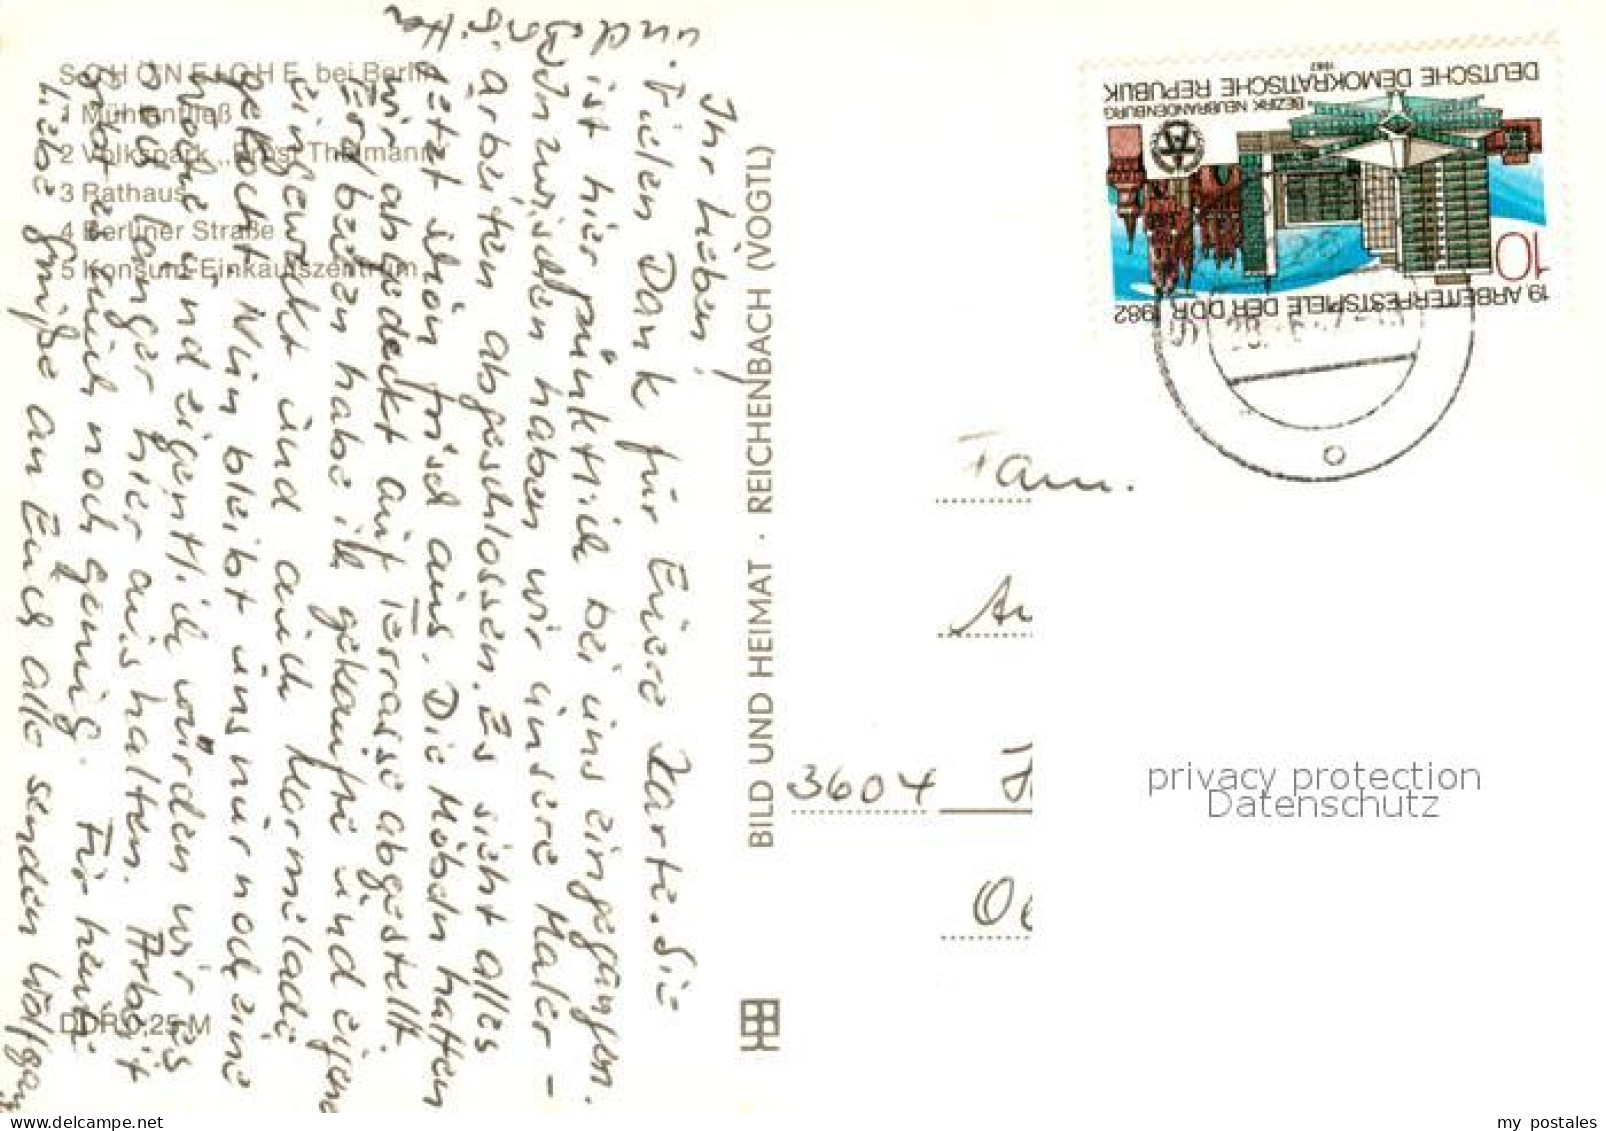 SCHÖNEICHE bei Berlin
1 Mühlenfließ
2 Volkspark „Ernst Thälmann"
3 Rathaus
4 Berliner Straße
5 Konsum-Einkaufszentrum
DDR 0,25 M
Ihr Lieben!
Vielen Dank für Euere Karte. Sie
ist hier pünktlich bei uns eingegangen.
Inzwischen haben wir unsere Maler-
arbeiten abgeschlossen. Es sieht alles
jetzt schön frisch aus. Die Möbeln hatten
wir abgedeckt auf Terrasse abgestellt.
Erdbeeren habe ich gekaufte und eigene
eingeweckt und auch Marmelade
gekocht. Nun bleibt uns nur noch eine
Woche und eigentlich würden wir es
noch länger hier aushalten. Arbeit
gebe es auch noch genug. Für heute
liebe Grüße an Euch alle senden Wolfgang
und
BILD UND HEIMAT · REICHENBACH (VOGTL)
DEUTSCHE DEMOKRATISCHE REPUBLIK
1982
BEZIRK NEUBRANDENBURG
10
19. ARBEITERFESTSPIELE DER DDR 1982
Fam.
3604
privacy protection
Datenschutz
my postales